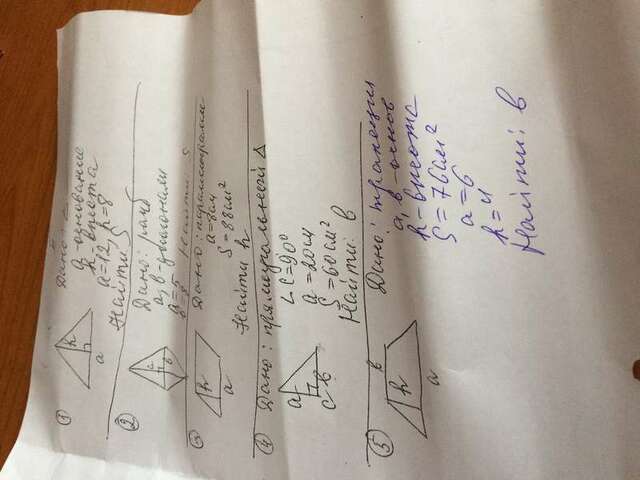 ① Дано: △
а-основание
h-высота
а=12, h=8
Найти: S
h
a
② Дано: ромб
а, в-диагонали
а=5
в=8 Найти: S
а
в
③ Дано: параллелограмм
а=8см
S=88см²
Найти h
h
a
④ Дано: прямоугольный △
∠C=90°
а=20см
S=60см²
Найти: в
а
с в
⑤ Дано: трапеция
а, в-основ
h-высота
S=76см²
а=6
h=4
Найти: в
в
h
а